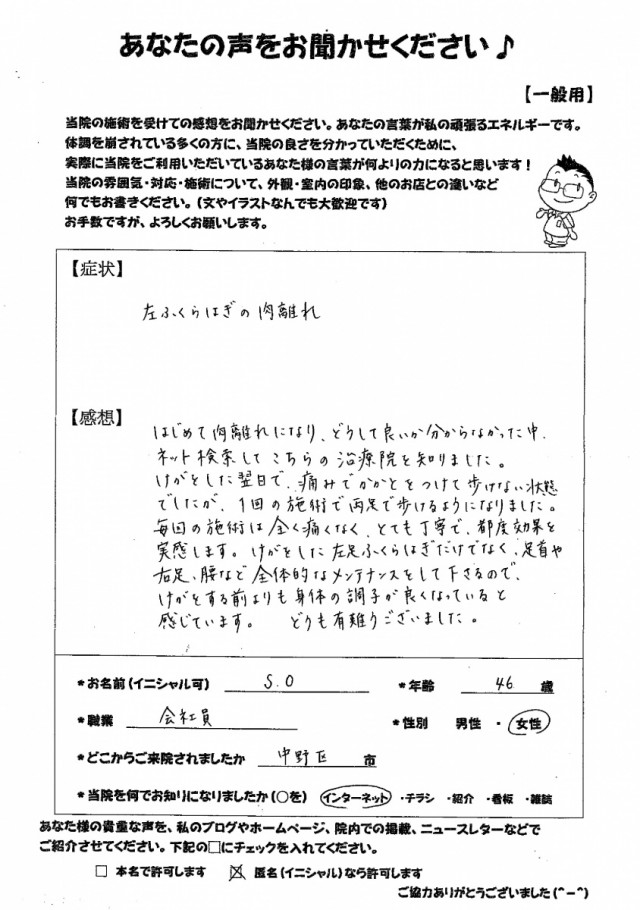 あなたの声をお聞かせください♪
【一般用】
当院の施術を受けての感想をお聞かせください。あなたの言葉が私の頑張るエネルギーです。
体調を崩されている多くの方に、当院の良さを分かっていただくために、
実際に当院をご利用いただいているあなた様の言葉が何よりの力になると思います！
当院の雰囲気・対応・施術について、外観・室内の印象、他のお店との違いなど
何でもお書きください。（文やイラストなんでも大歓迎です）
お手数ですが、よろしくお願いします。
【症状】
左ふくらはぎの肉離れ
【感想】
はじめて肉離れになり、どうして良いか分からなかった中、
ネット検索してこちらの治療院を知りました。
けがをした翌日で、痛みでかかとをつけて歩けない状態
でしたが、1回の施術で両足で歩けるようになりました。
毎回の施術は全く痛くなく、とても丁寧で、都度効果を
実感します。けがをした左足ふくらはぎだけでなく、足首や
右足、腰など全体的なメンテナンスをして下さるので、
けがをする前よりも身体の調子が良くなっていると
感じています。 どうも有難うございました。
*お名前（イニシャル可） S.O *年齢 46 歳
*職業 会社員 *性別 男性 ・ 女性
*どこからご来院されましたか 中野区 市
*当院を何でお知りになりましたか（○を） インターネット ・チラシ ・紹介 ・看板 ・雑誌
あなた様の貴重な声を、私のブログやホームページ、院内での掲載、ニュースレターなどで
ご紹介させてください。下記の□にチェックを入れてください。
□ 本名で許可します ☒ 匿名（イニシャル）なら許可します
ご協力ありがとうございました(^-^)